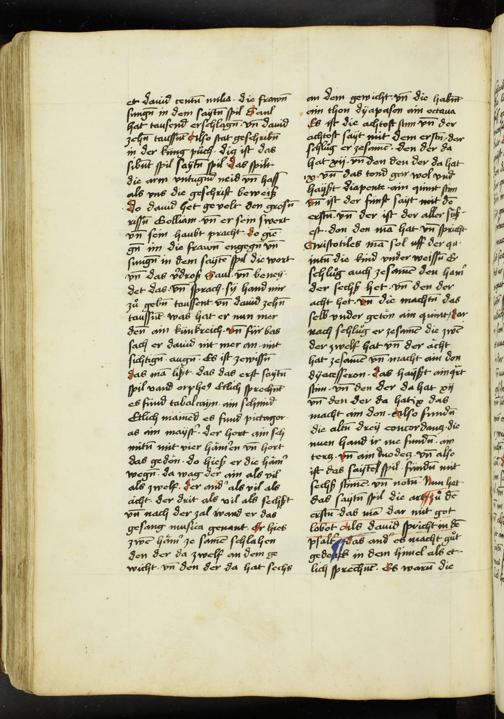 et dauid centũ milia · die frawñ
sungñ in dem saytñ spil Saul
hat tausend erschlagñ vñ dauid
zehñ taussñt Also stat geschribñ
in der küng puch · dig ist das
sibñt spil saytñ spil das spilt
die arm vntugñt neid vñ hass
als vns die geschrift beweist
Do dauid het gevelt den grossñ
rissñ Golliam vñ er sein swert
vñ sein haubt pracht · do gie
gñ im die frawñ engegñ vñ
sungñ in dem saytñ spil die wort
vñ das vdros Saul vñ beney
det das vñ sprach · sy hand mir
zů gebñ taussent vñ dauid zehñ
taussñt · was hat er nun mer
den ain künkreich · vñ für bas
sach er dauid nit mer an mit
sichtigñ augñ · Es ist zewissñ
das mã list das das erst saytñ
spil vand orphes Etlich sprechñt
es fund tabalcaym · ain schmid
Etlich mainẽd es fund pictagor
as ain mayst · der hort ain sch
mitñ mit vier hämeñ vñ hort
das gedön · do hies er die häm
wegñ · da wag der ain als vil
als zwelf · der and als vil als
acht · der drit als vil als sechsst
vñ nach der zal ward er das
gesang musica genant · er hies
zwen häm ze samẽ schlahen
den der da zwelf an dem ge
wicht · vñ den der da hat sechs
an dem gewicht · vñ die habñt
ain thon dyapason ain octaua
Es ist die achtost stim vñ der
achtost sayt mit dem erstñ · dar
schlůg er zesamẽ · den der da
hat xij · vñ den der da hat
ix · vñ das tönd gar wol vnd
haysst · diapente ain quint stim
vñ ist der fünft sayt mit dẽ
erstñ · vñ der ist der aller süss
est · den den mã hat vñ spricht
Aristotiles mã sol uff der qu
intñ die kind vnder weissñ Er
schlůg auch zesamẽ den ham
der sechs het · vñ den der
acht het · vñ die machtñ das
selb vnder getön ain quint · dar
nach schlůg er zesamẽ die zwẽ
der zwelf hat vñ der acht
hat zesamẽ vñ macht ain don
dyatesseron · das haysst ain qrt
stim · vñ den der da hat xij
vñ den der da hat ix das
macht ain don · Also fundñ
die altñ dreÿ concordanz · die
nuen hand ir me fundñ · ain
terz · vñ ain duodez · vñ also
ist das saytẽ spil · fundñ mit
sechs stimẽ vñ notñ · Nun hat
das saytñ spil die art zů dẽ
erstñ das mã dar mit got
lobot als dauid spricht in dẽ
psalt · das and es macht gůt
gedenk in dem himel als et
lich sprechñt · Es warñ die